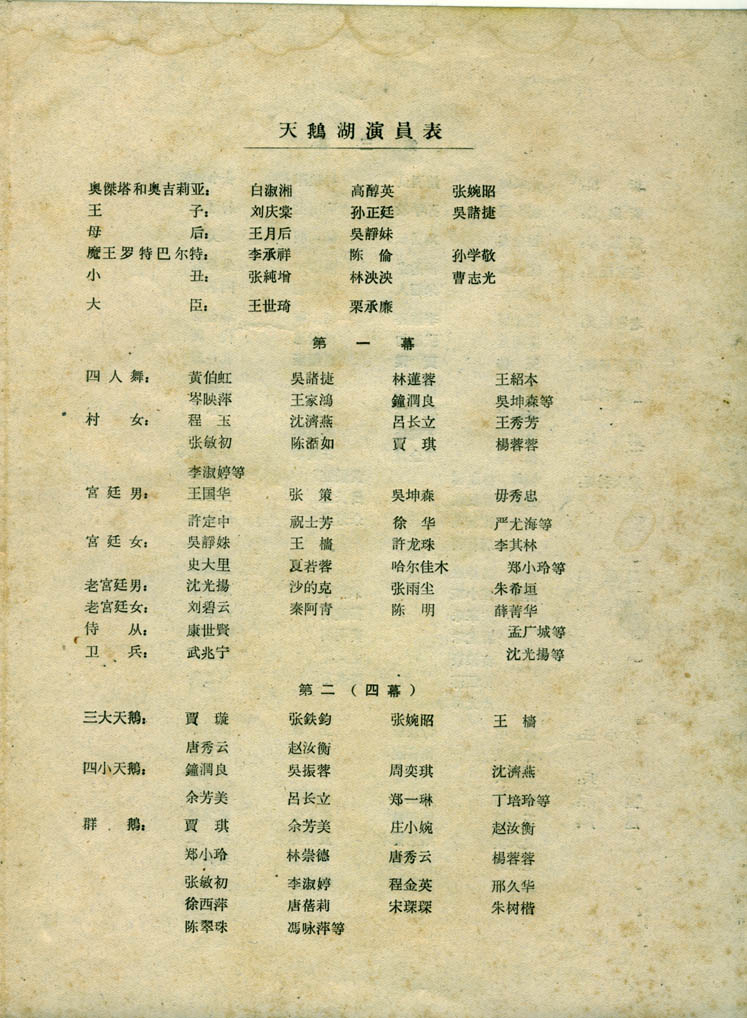 天鵝湖演員表
奥傑塔和奥吉莉亚： 白淑湘 高醇英 张婉昭
王子： 刘庆棠 孙正廷 吳諸捷
母后： 王月后 吳靜妹
魔王罗特巴尔特： 李承祥 陈倫 孙学敬
小丑： 张純增 林泱泱 曹志光
大臣： 王世琦 栗承廉
第一幕
四人舞： 黃伯虹 吳諸捷 林蓮蓉 王紹本
岑映萍 王家鴻 鐘潤良 吳坤森等
村女： 程玉 沈濟燕 呂长立 王秀芳
张敏初 陈湎如 賈琪 楊蓉蓉
李淑婷等
宮廷男： 王国华 张策 吳坤森 毋秀忠
許定中 祝士芳 徐华 严尤海等
宮廷女： 吳靜姝 王檣 許龙珠 李其林
史大里 夏若蓉 哈尔佳木 郑小玲等
老宮廷男： 沈光揚 沙的克 张雨尘 朱希垣
老宮廷女： 刘碧云 秦阿青 陈明 薛菁华
侍从： 康世賢 孟广城等
卫兵： 武兆宁 沈光揚等
第二（四幕）
三大天鵝： 賈璇 张鉄鈞 张婉昭 王檣
唐秀云 赵汝衡
四小天鵝： 鐘潤良 吳振蓉 周奕琪 沈濟燕
余芳美 呂长立 郑一琳 丁培玲等
群鵝： 賈琪 余芳美 庄小婉 赵汝衡
郑小玲 林崇德 唐秀云 楊蓉蓉
张敏初 李淑婷 程金英 邢久华
徐西萍 唐蓓莉 宋琛琛 朱树楷
陈翠珠 馮咏萍等